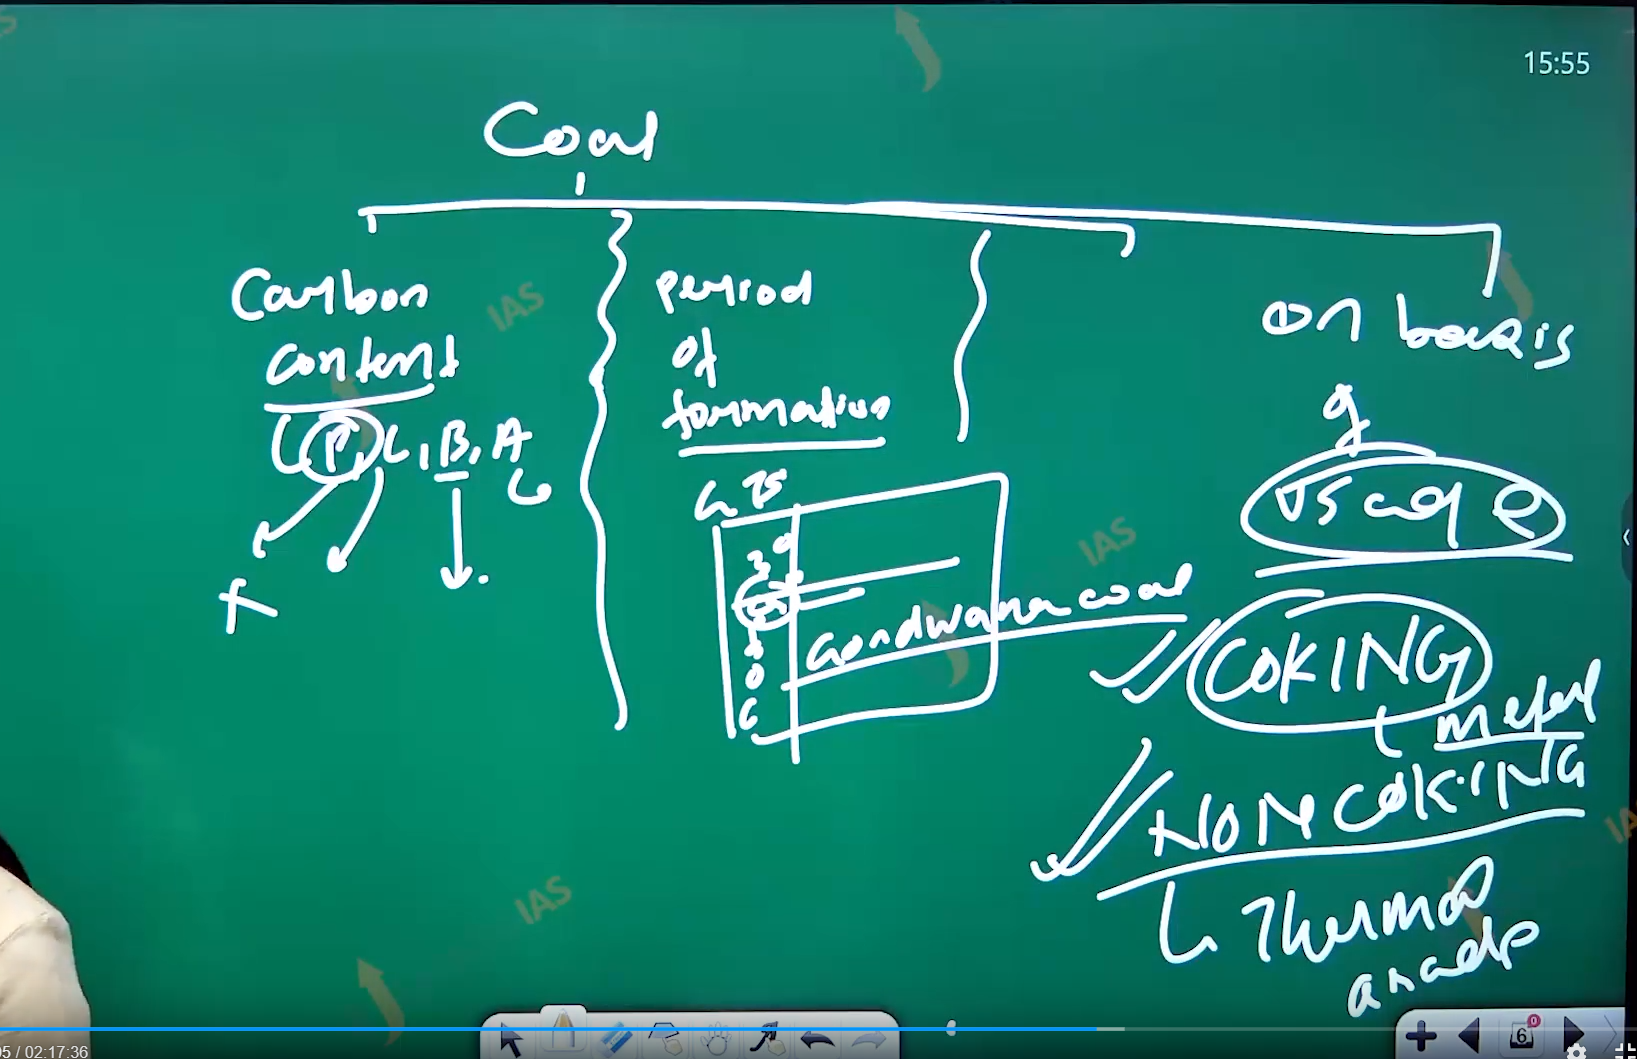 15:55
Coal
Carbon
content
P, L, B, A
period
of
formation
Gondwana coal
on basis
of
usage
COKING
metal
NON COKING
Thermal
Grade
IAS
IAS
IAS
6
02:17:36